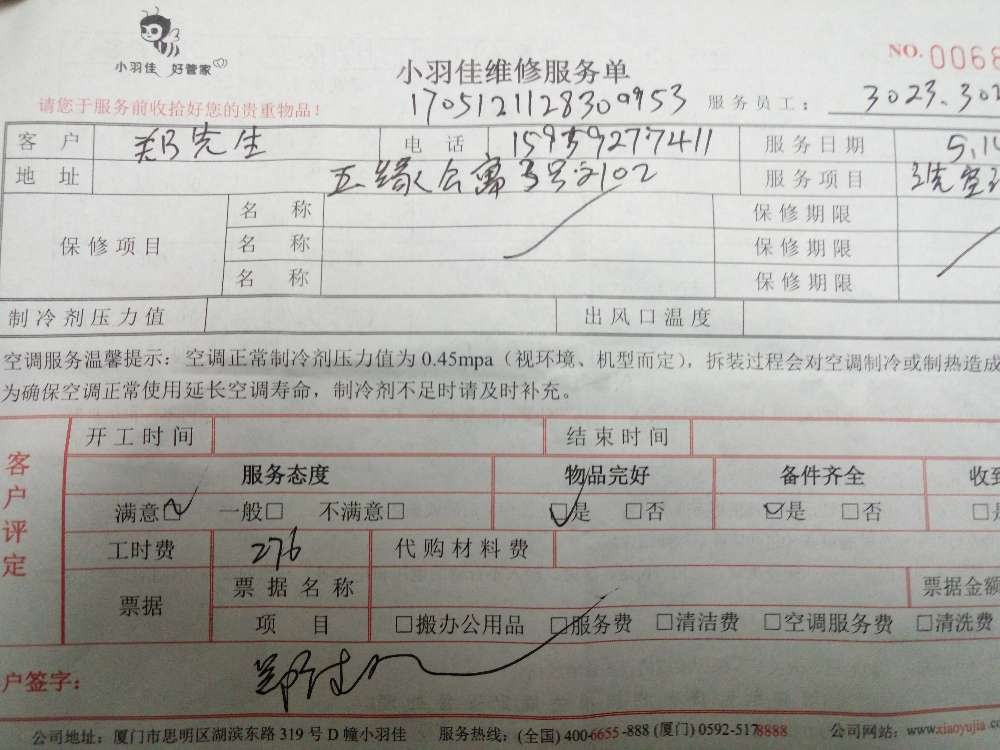 小羽佳 好管家
NO.0068
小羽佳维修服务单
请您于服务前收拾好您的贵重物品！
1705121128300953 服务员工： 3023.302
客户 郑先生 电话 15959277411 服务日期 5.1
地址 五缘公寓3号2102 服务项目 洗空
保修项目 名称 保修期限
名称 保修期限
名称 保修期限
制冷剂压力值 出风口温度
空调服务温馨提示：空调正常制冷剂压力值为 0.45mpa（视环境、机型而定），拆装过程会对空调制冷或制热造成
为确保空调正常使用延长空调寿命，制冷剂不足时请及时补充。
客户评定
开工时间 结束时间
服务态度 物品完好 备件齐全 收到
满意□ 一般□ 不满意□ □是 □否 □是 □否 □是
工时费 276 代购材料费
票据 票据名称 票据金额
项目 □搬办公用品 □服务费 □清洁费 □空调服务费 □清洗费
户签字：
公司地址：厦门市思明区湖滨东路 319 号 D 幢小羽佳 服务热线：(全国) 400-6655-888 (厦门) 0592-5178888 公司网站：www.xiaoyujia.co